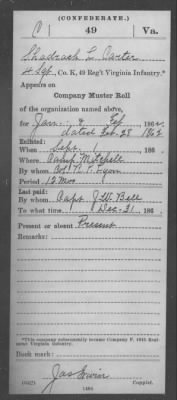 (CONFEDERATE.)
C 49 Va.
Shadrach L. Carter
4 Sgt, Co. K, 49 Reg't Virginia Infantry.*
Appears on
Company Muster Roll
of the organization named above,
for Jan. & Feb, 1862.
dated Feb. 28 1862
Enlisted:
When Sept. 1, 186 .
Where Camp Mitchell
By whom Col. R. T.
Period 12 Mos
Last paid:
By whom Capt. J. W. Bell
To what time Dec. 31, 186 .
Present or absent Present
Remarks:
*This company subsequently became Company F, 49th Reg't
Virginia Infantry.
Book mark:
Jas
Copyist.